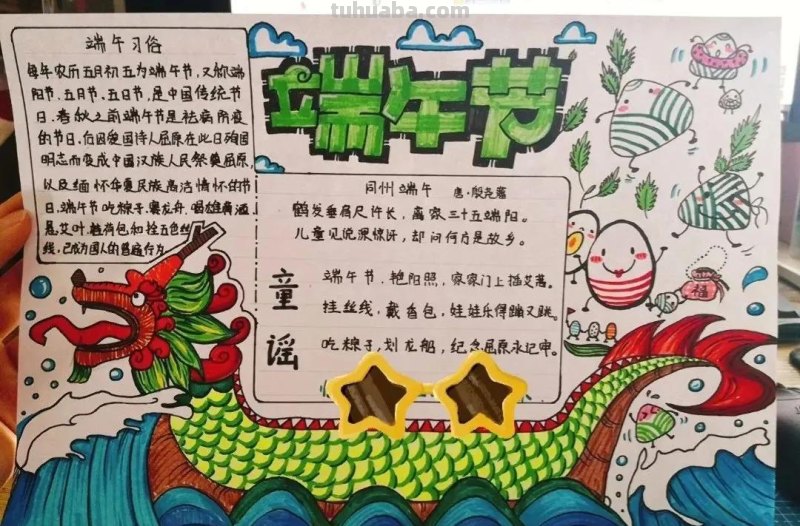 tuhuaba.com
端午习俗
每年农历五月初五为端午节,又称端
阳节、五月节、五日节,是中国传统节
日。春秋之前端午节是祛病防疫
的节日,后因爱国诗人屈原在此日殉国
明志而变成中国汉族人民祭奠屈原,
以及缅怀华夏民族高洁情怀的节
日。端午节吃粽子,赛龙舟,喝雄黄酒,
悬艾叶,戴荷包和拴五色丝
线,已成为国人的普遍行为
端午节
同州端午 唐·殷尧藩
鹤发垂肩尺许长,离家三十五端阳。
儿童见说深惊讶,却问何方是故乡。
童谣
端午节,艳阳照,家家门上插艾蒿。
挂丝线,戴香包,娃娃乐得蹦又跳。
吃粽子,划龙船,纪念屈原永记牢。
福